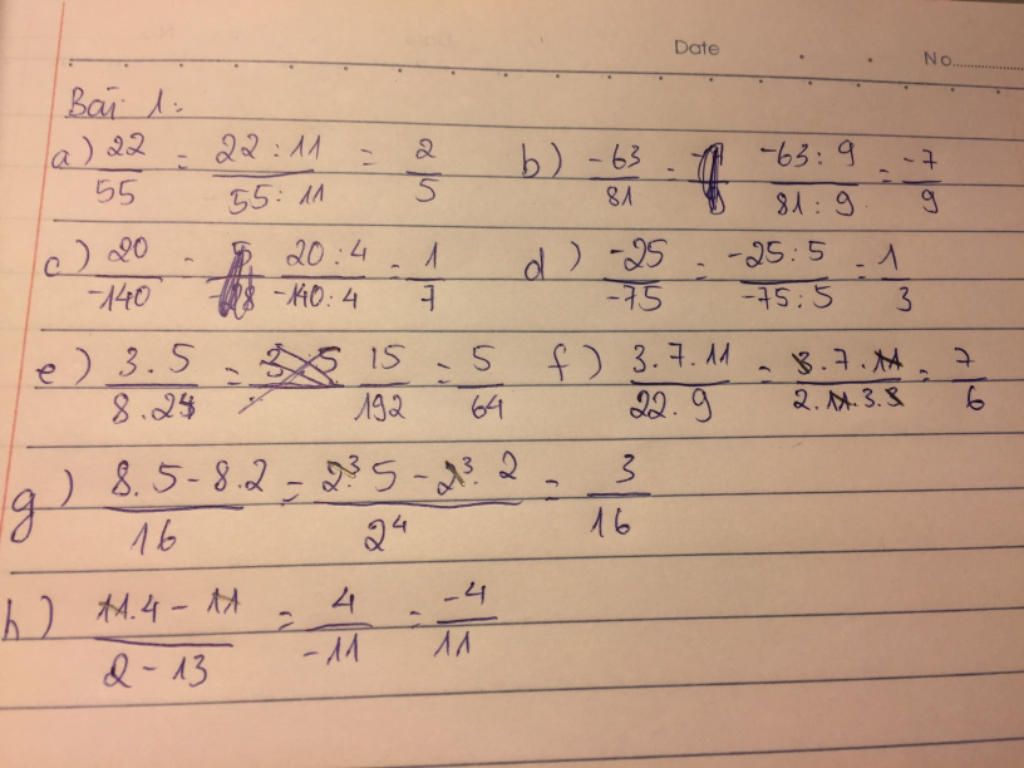 Date No.
Bài 1:
a) 22/55 = 22 : 11/55 : 11 = 2/5 b) -63/81 = -63 : 9/81 : 9 = -7/9
c) 20/-140 = 20 : 4/-140 : 4 = 1/7 d) -25/-75 = -25 : 5/-75 : 5 = 1/3
e) 3 . 5/8 . 24 = 3 5 15/192 = 5/64 f) 3 . 7 . 11/22 . 9 = 3 . 7 . 11/2 . 11 . 3 . 3 = 7/6
g) 8 . 5 - 8 . 2/16 = 2³ 5 - 2³ . 2/2⁴ = 3/16
h) 11 . 4 - 11/2 - 13 = 4/-11 = -4/11